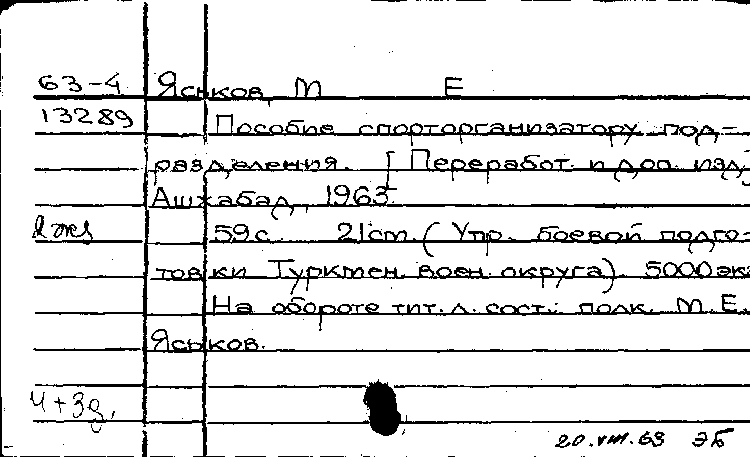 63-4 Яськов, М Е
13289 Пособие спорторганизатору под-
разделения. [Переработ. и доп. изд.]
Ашхабад, 1963.
59с. 21cm. (Упр. боевой подго-
товки Туркмен. воен. округа). 5000 экз
На обороте тит. л. сост.: полк. М. Е.
Яськов.
Ч+3д.
20.VIII.63 ЭБ